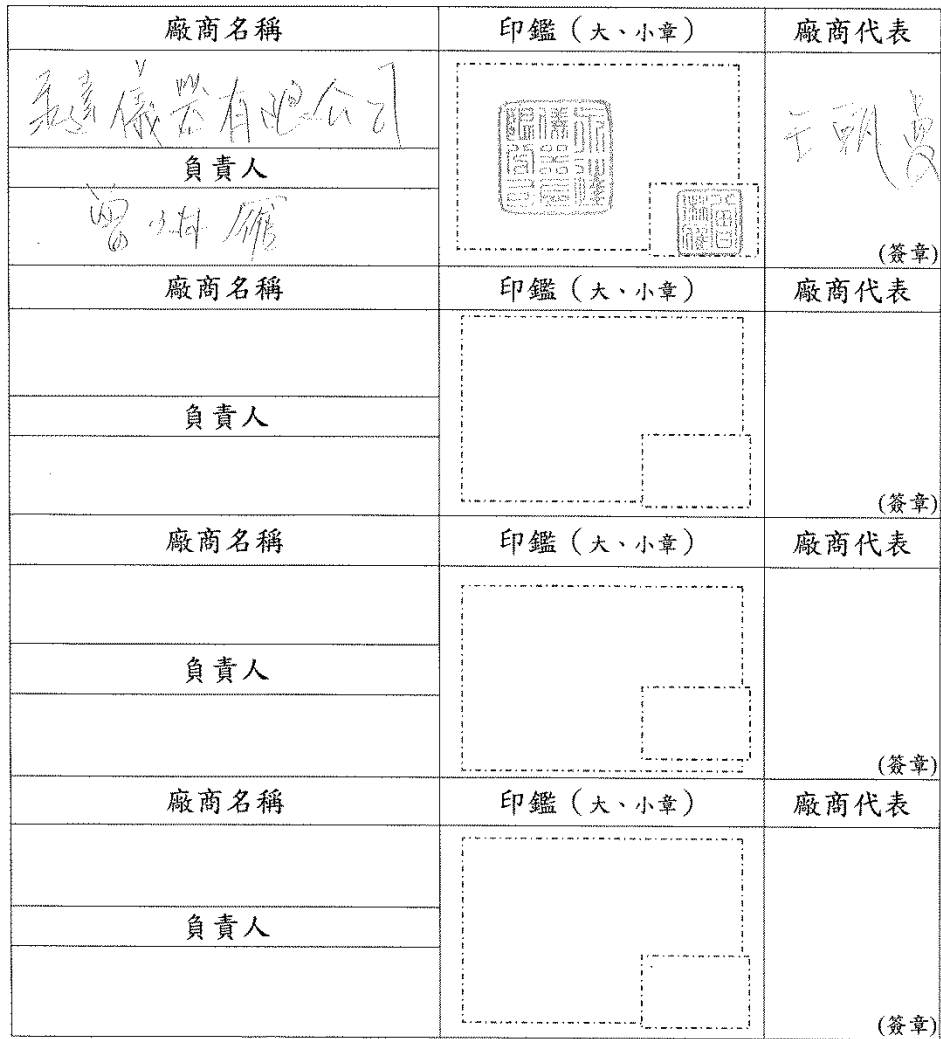 廠商名稱 印鑑（大、小章） 廠商代表
儀器有限公司
負責人
曾
(簽章)
廠商名稱 印鑑（大、小章） 廠商代表
負責人
(簽章)
廠商名稱 印鑑（大、小章） 廠商代表
負責人
(簽章)
廠商名稱 印鑑（大、小章） 廠商代表
負責人
(簽章)